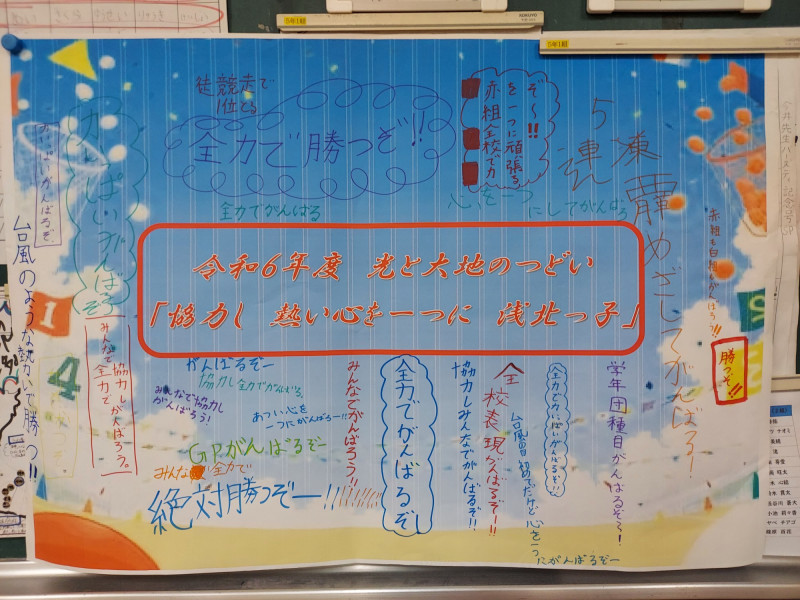 5年1組
5年1組
徒競走で
1位とる
全力で勝つぞ!!
全力でがんばる
赤組全校で力
を一つに頑張る
ぞ〜!!
心を一つ
にしてがんばろ
5連
めざしてがんばるー!
赤組も白組もがんばろう!!
勝つぞ!!
いっぱいがんばるぞ
台風のような熱かいで勝つ!!
令和6年度 光と大地のつどい
「協力し 熱い心を一つに 浅北っ子」
1
4
みんなで
全力で
協力しがんばろう。
がんばるぞー
協力し全力でがんばる。
みんなで協力し
がんばろう!
あつい心を
一つにがんばるー!!
GPがんばるぞー
みんな全力で
絶対勝つぞー!!
みんなでがんばろう!!
全力でがんばるぞ
協力しみんなでがんばるぞ!!
全校表現がんばるぞー!!
台風の目初めてだけど心を一つ
にがんばるぞー
全力で力いっぱいがんばるぞ!!
学年団種目がんばるぞ〜!